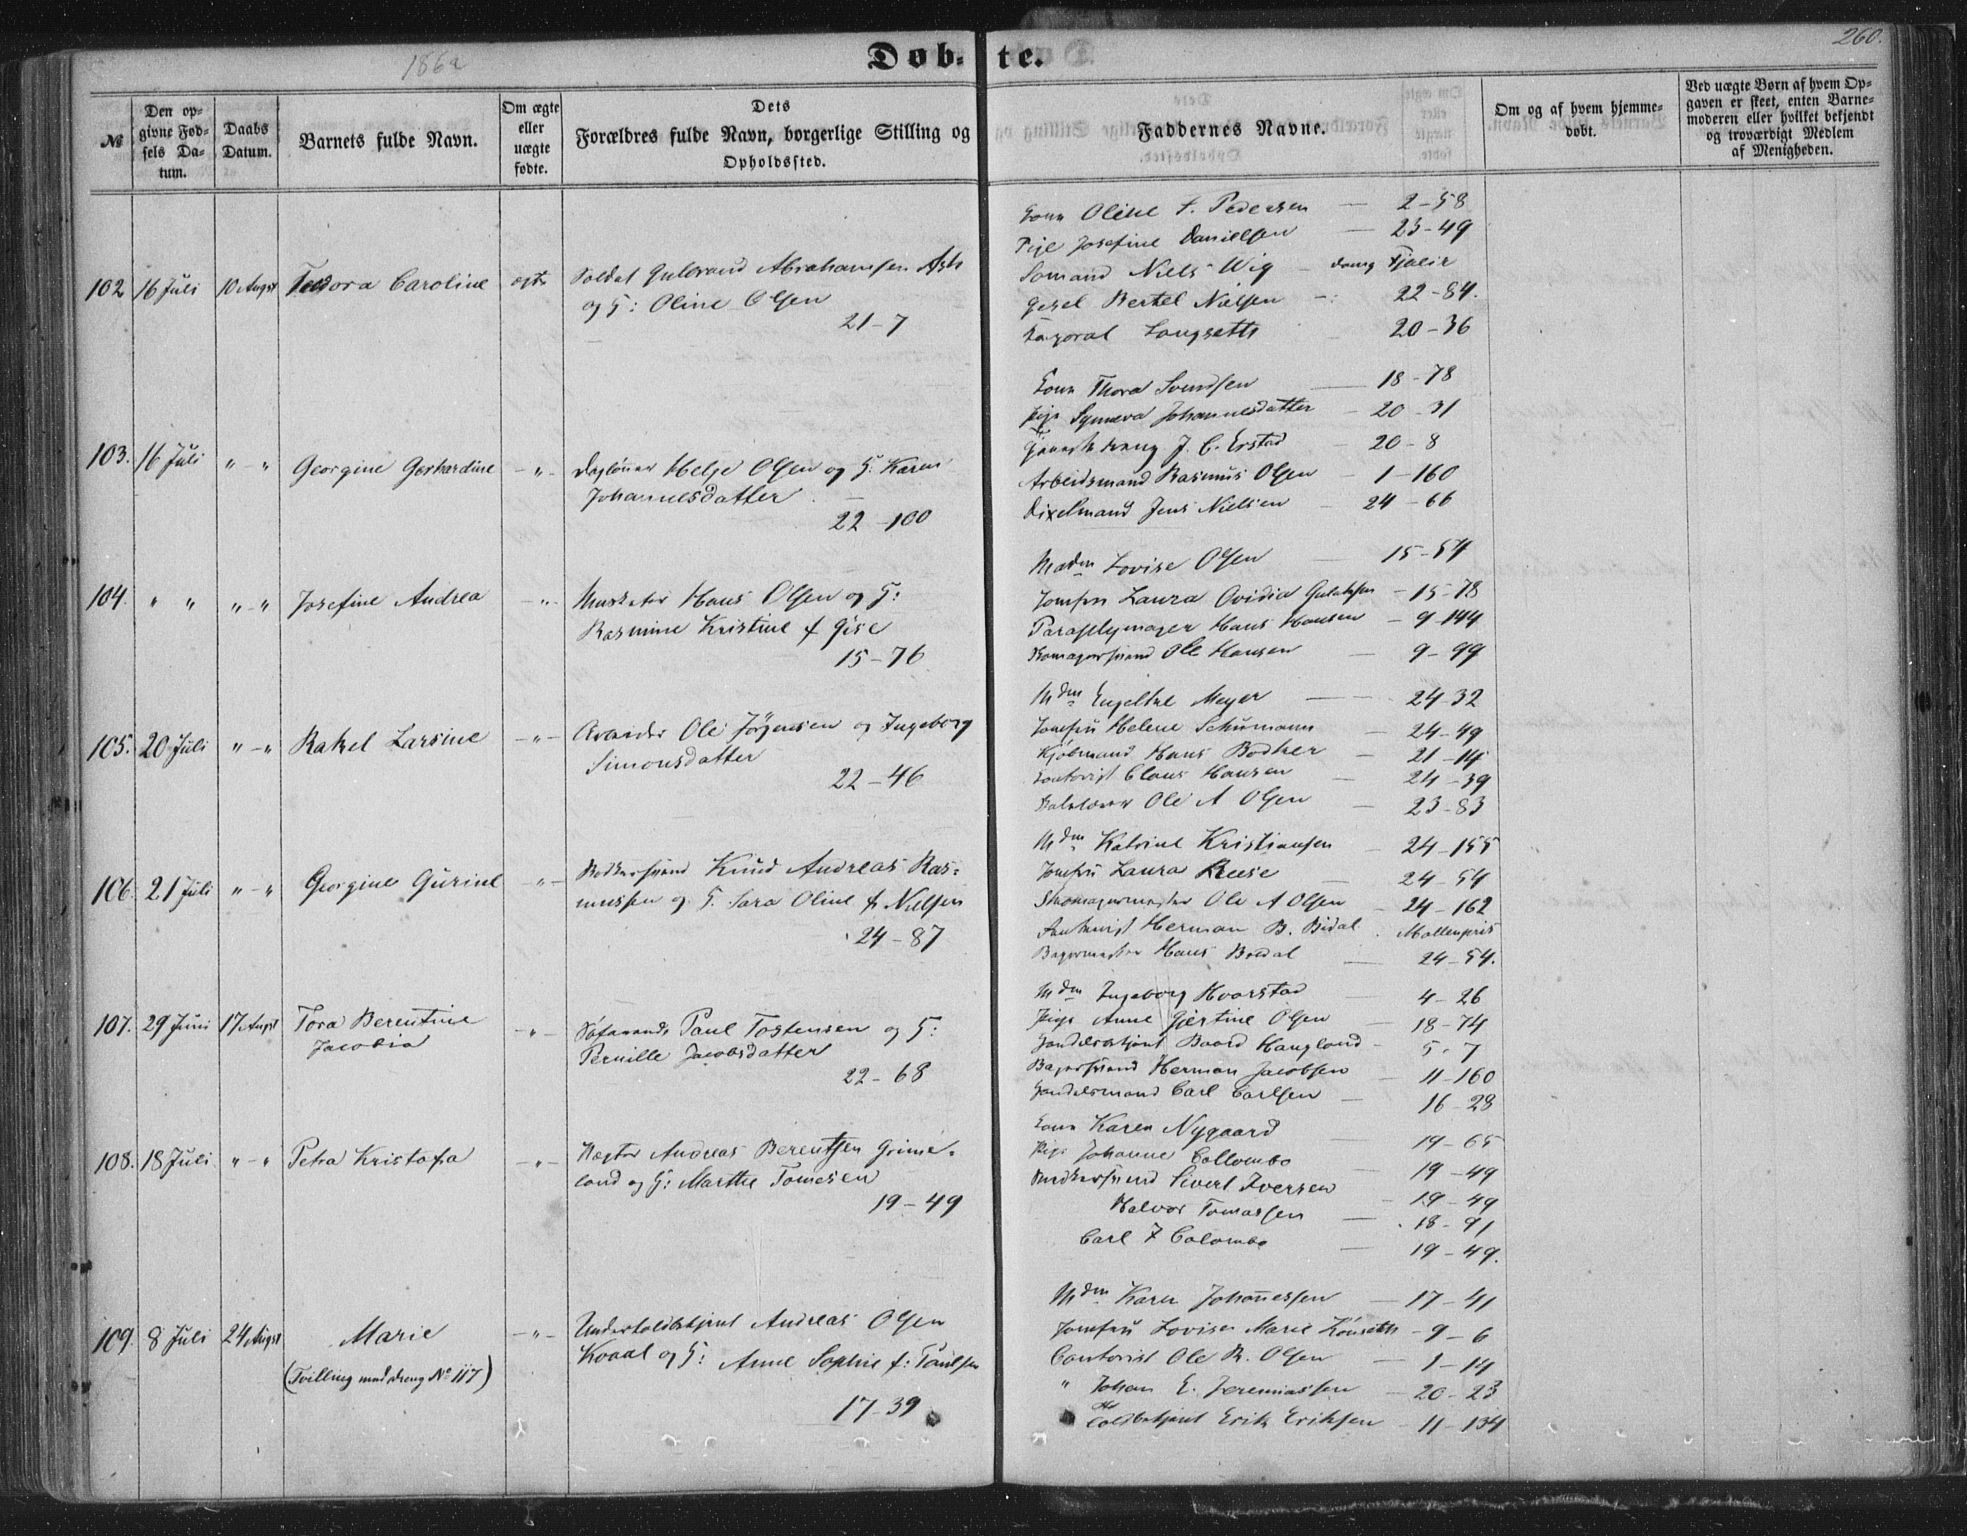 1862
Døb- te.
260.
№
Den opgivne Fødsels Datum.
Daabs Datum.
Barnets fulde Navn.
Om ægte eller uægte fødte.
Dets Forældres fulde Navn, borgerlige Stilling og Opholdssted.
Faddernes Navne.
Om og af hvem hjemmedøbt.
Ved uægte Børn af hvem Opgaven er skeet, enten Barnemoderen eller hvilket bekjendt og troværdigt Medlem af Menigheden.
102 16 Juli 10 Augst Teodora Caroline ægte
Soldat Gulbrand Abrahamsen Ask
og H: Oline Olsen
21-7
Kone Oline f. Pedersen — 2-58
Pige Josefine Danielsen — 23-49
Sømand Niels Wig
Gesel Bertel Nielsen — 22-84.
Korporal Langseth — 20-36
103. 16 Juli " - " Georgine Gerhardine - " -
Dagløner Helje Olsen og H. Karen
Johannesdatter
22-100
Kone Thora Svendsen — 18-78
Pige Synneva Johannesdatter — 20-31
J. C. Erstad — 20-8
Arbeidsmand Rasmus Olsen — 1-160
Dixelmand Jens Nielsen — 24-66
104. " " " - " Josefine Andrea - " -
Musketer Hans Olsen og H:
Rasmine Kristine f Gise
15-76
Madm Lovise Olsen — 15-54
Jomfru Laura Ovidia — 15-78
Paraplymager Hans Hansen — 9-144
Skomagersvend Ole Hansen — 9-99
105. 20 Juli " - " Rakel Larsine - " -
Arbeider Ole Jörgensen og Ingeborg
Simonsdatter
22-46
Mdm Engeltke Meyer — 24-32
Jomfru Helene Schumann — 24-49
Kjöbmand Hans Bödker — 21-14
Kontorist Claus Hansen — 24-39
Ole A Olsen — 23-83
106. 21 Juli " - " Georgine Gurine - " -
Bödkersvend Knud Andreas Ras-
mussen og H. Sara Oline f Nielsen
24-87
Mdm Katrine Kristiansen — 24-155
Jomfru Laura Reese — 24-54
Skomagermester Ole A Olsen — 24-162
Herman B. Bødal . Møllenpris
Bagermester Hans Bødal — 24-54.
107. 29 Juni 17 Augst Tora Berentine - " -
Jacobia
Paul Tostensen og H:
Pernille Jacobsdatter
22-68
Mdm Ingeborg Hvarstad — 4-26
Pige Anne Gjertine Olsen — 18-74
Handelsbetjent Baard Haugland - 5-7
Bagersvend Herman Jacobsen — 11-160
Handelsmand Carl Carlsen — 16-28
108. 18 Juli " - " Petra Kristofa - " -
Vægter Andreas Berentsen Grime-
land og H: Marthe Tomesen
19-49
Kone Karen Nygaard — 19-65
Pige Johanne Collombo — 19-49
Bødkersvend Sivert Iversen — 19-49
Halvor Tomassen — 18-91
Carl F Colombo — 19-49.
109. 8 Juli 24 Augst Marie - " -
(Tvilling med dreng № 117)
Undertoldbetjent Andreas Olsen
Kvaal og H: Anne Sophie f: Paulsen
17-39
Mdm Karen Johannessen — 17-41
Jomfru Lovise Marie — 9-6
Contorist Ole R. Olsen — 1-14
" Johan E. Jeremiassen — 20-23
Toldbetjent Erik Eriksen — 11-134